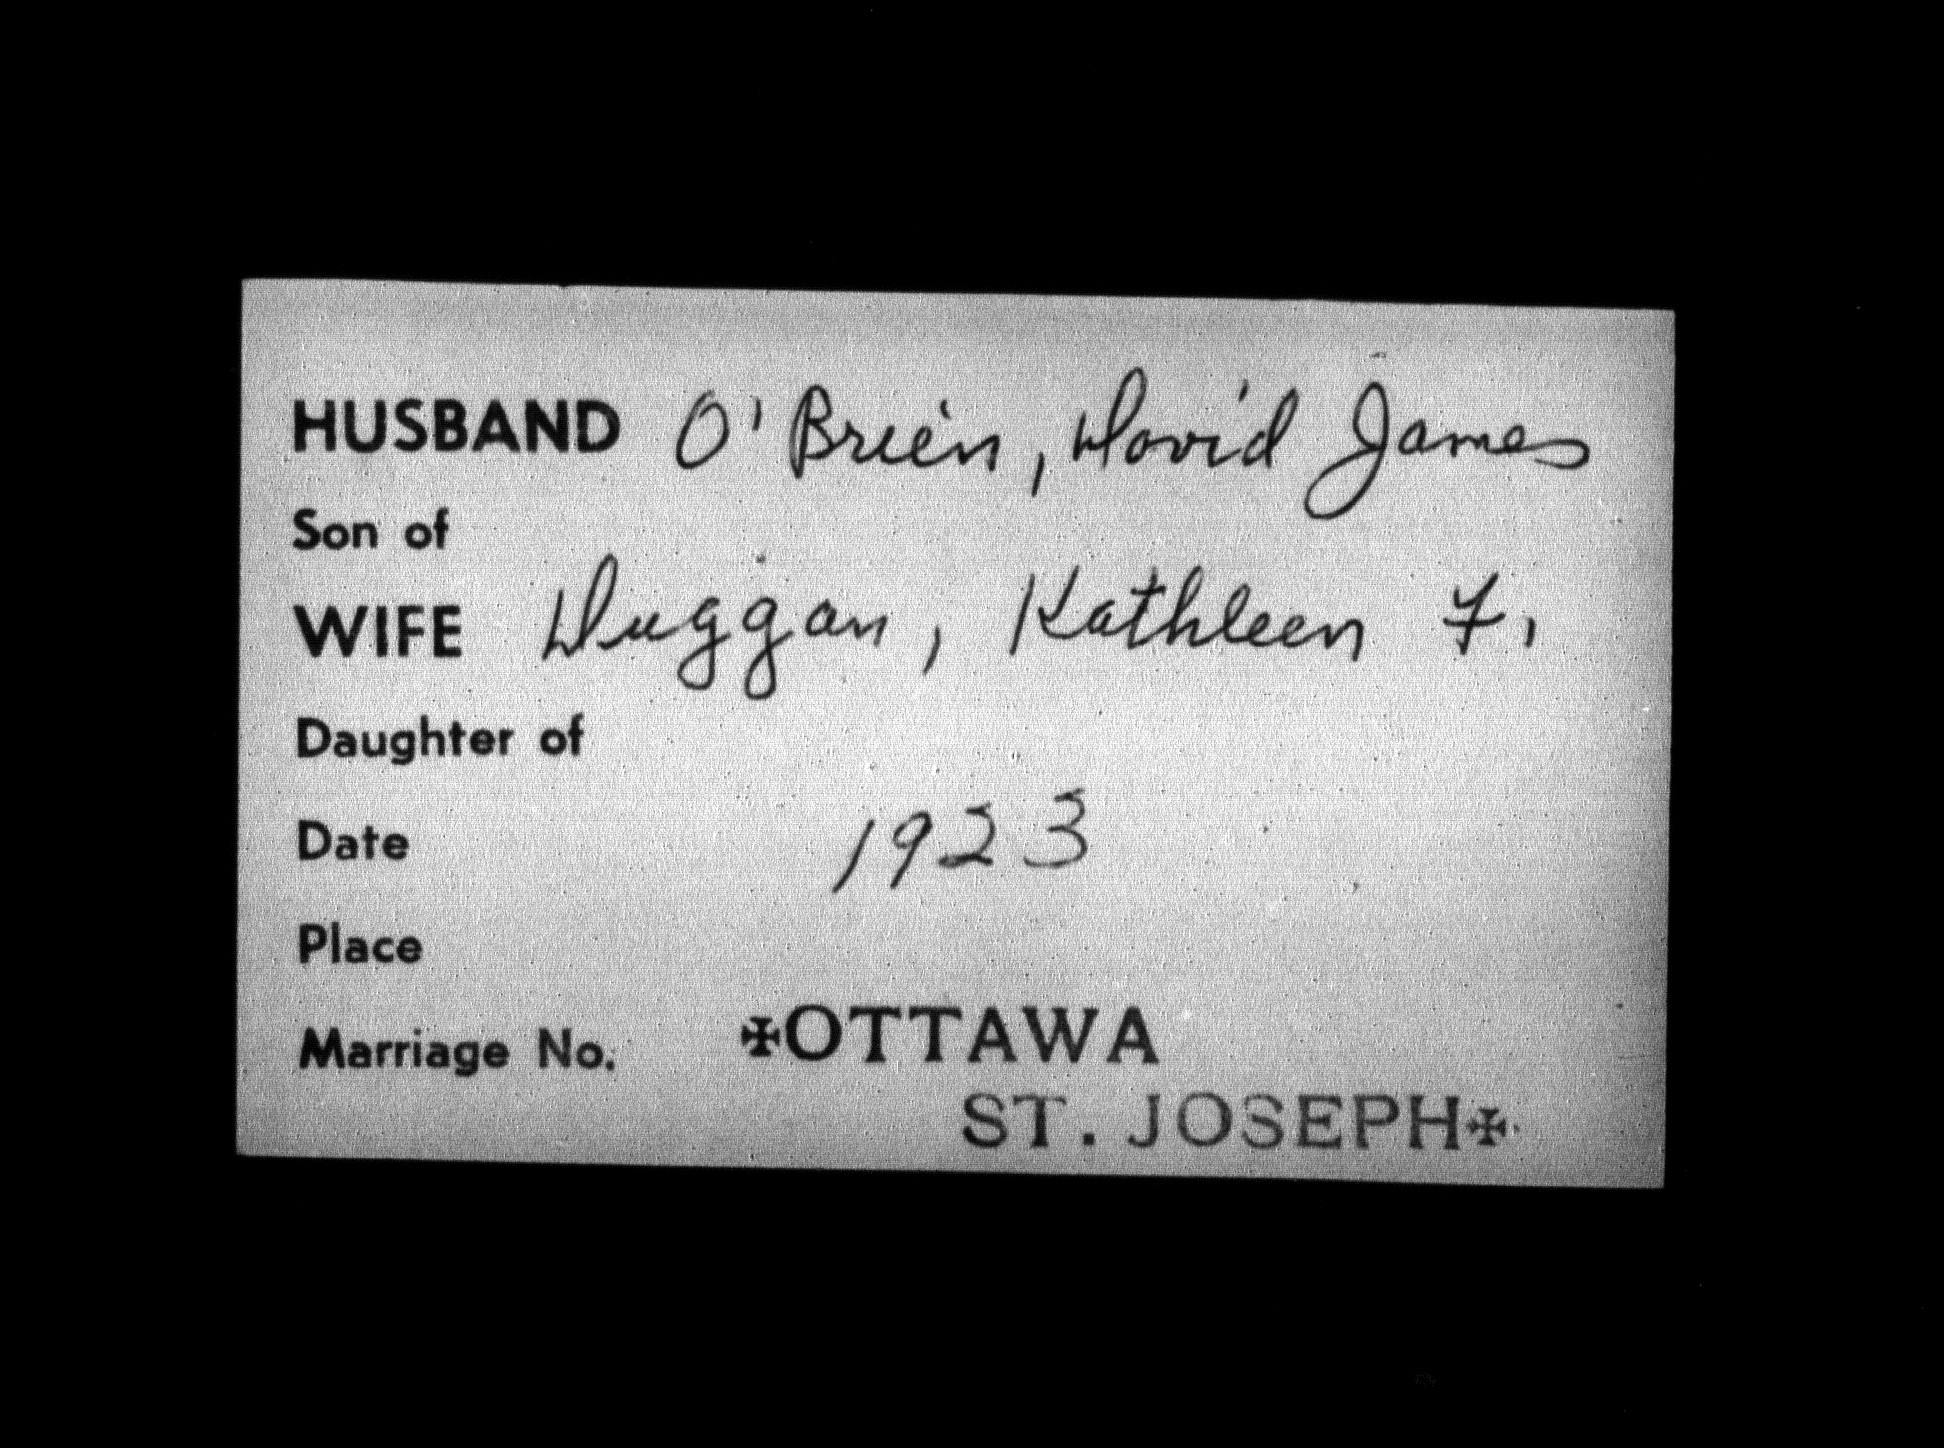 HUSBAND O'Brien, David James
Son of
WIFE Duggan, Kathleen F.
Daughter of
Date 1923
Place
Marriage No. ✠OTTAWA
ST. JOSEPH✠